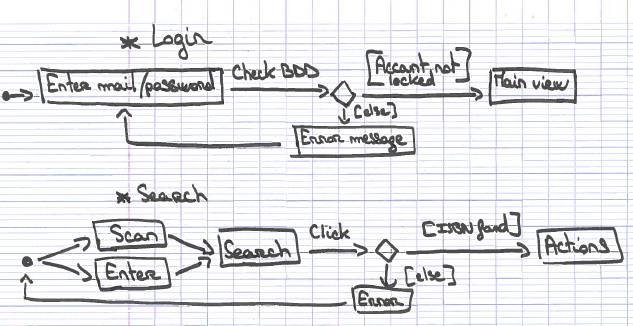 * Login
Enter mail/password
Check BDD
[Account not
locked]
Main view
[else]
Error message
* Search
Scan
Enter
Search
Click
[ISBN found]
Actions
[else]
Error